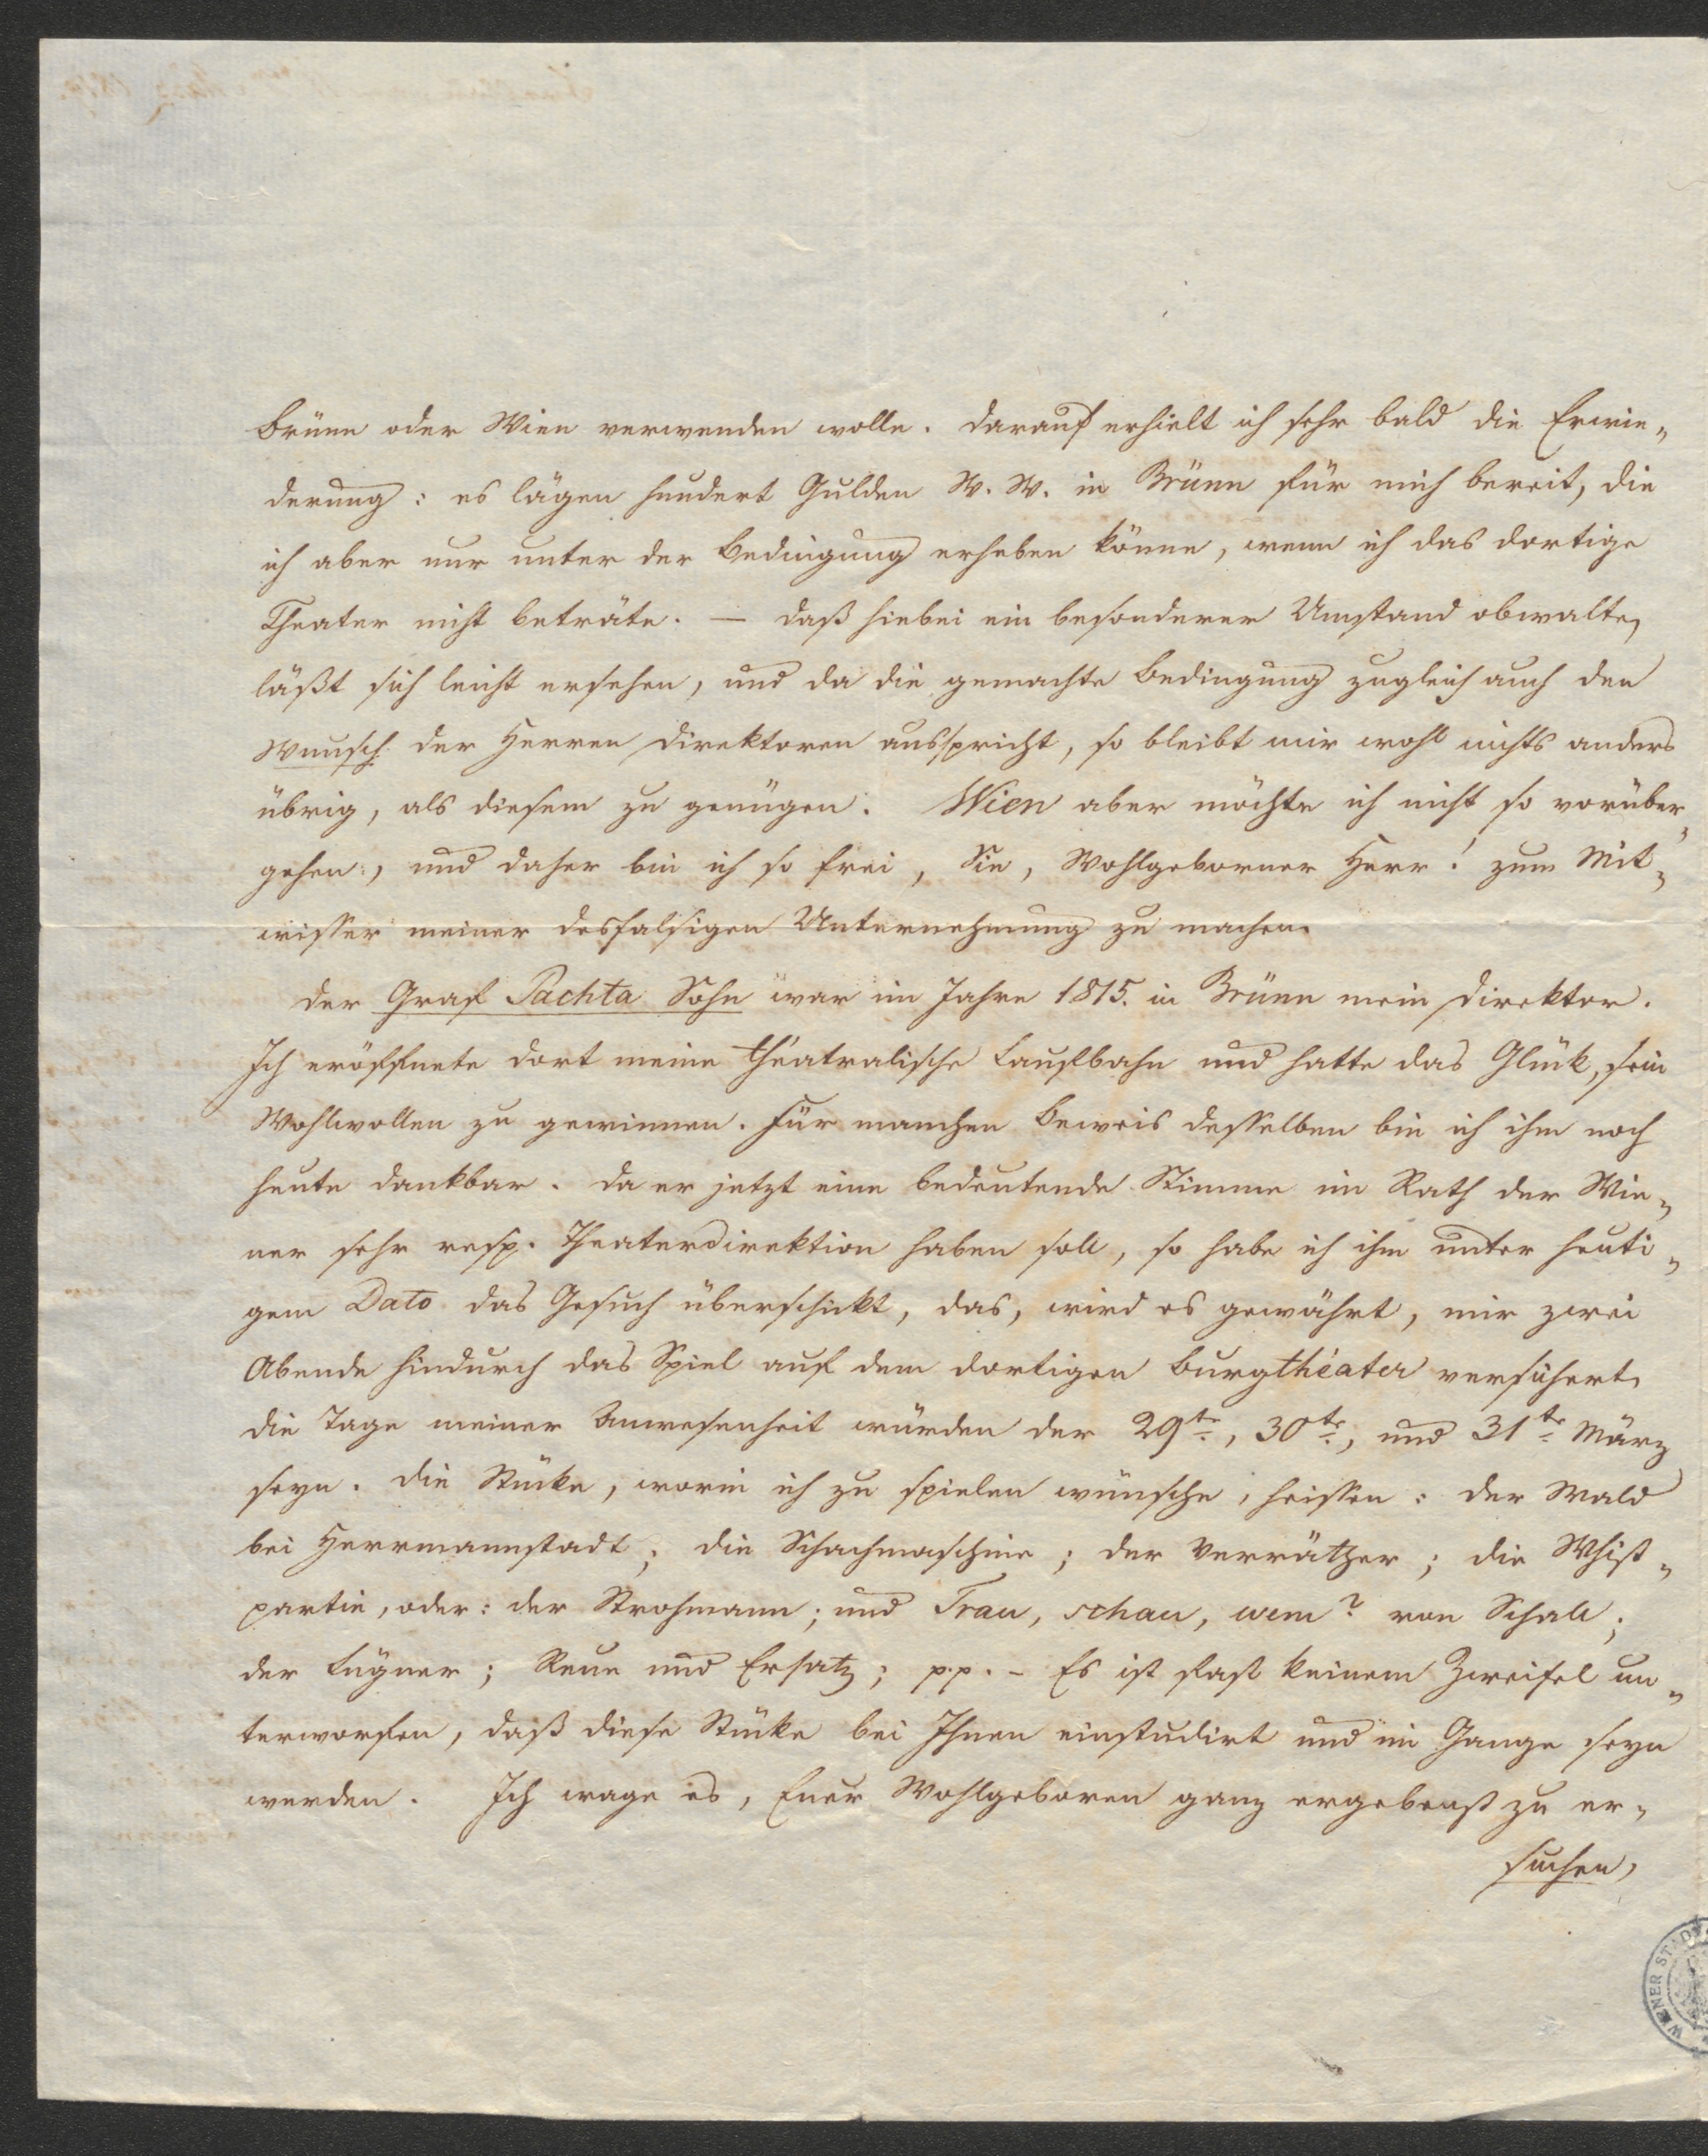 Brünn oder Wien verwenden wolle. Darauf erhielt ich sehr bald die Erwie-
derung: es lägen hundert Gulden W. W. in Brünn für mich bereit, die
ich aber nur unter der Bedingung erheben könne, wenn ich das dortige
Theater nicht beträte. — Daß hiebei ein besonderer Umstand obwalte,
läßt sich leicht ersehen, und da die gemachte Bedingung zugleich auch den
Wunsch der Herren Direktoren ausspricht, so bleibt mir wohl nichts anders
übrig, als diesem zu genügen. Wien aber möchte ich nicht so vorüber-
gehen, und daher bin ich so frei, Sie, Wohlgeborner Herr! zum Mit-
wisser meiner desfalsigen Unternehmung zu machen.
Der Graf Pachta Sohn war im Jahre 1815. in Brünn mein Direktor.
Ich eröffnete dort meine théatralische Laufbahn und hatte das Glück, sein
Wohlwollen zu gewinnen. Für manchen Beweis desselben bin ich ihm noch
heute dankbar. Da er jetzt eine bedeutende Stimme im Rath der Wie-
ner sehr resp. Theaterdirektion haben soll, so habe ich ihm unter heuti-
gem Dato das Gesuch überschickt, das, wird es gewährt, mir zwei
Abende hindurch das Spiel auf dem dortigen Burgthéater versichert.
Die Tage meiner Anwesenheit würden der 29te, 30te, und 31te März
seyn. Die Stücke, worin ich zu spielen wünsche, heissen: Der Wald
bei Herrmannstadt; die Schachmaschine; der Verräther; die Whist-
partie, oder: der Strohmann; und Trau, schau, wem? von Schall;
der Lügner; Reue und Ersatz; p.p. - Es ist fast keinem Zweifel un-
terworfen, daß diese Stücke bei Ihnen einstudirt und im Gange seyn
werden. Ich wage es, Euer Wohlgeboren ganz ergebenst zu er-
suchen,
WIENER STAD